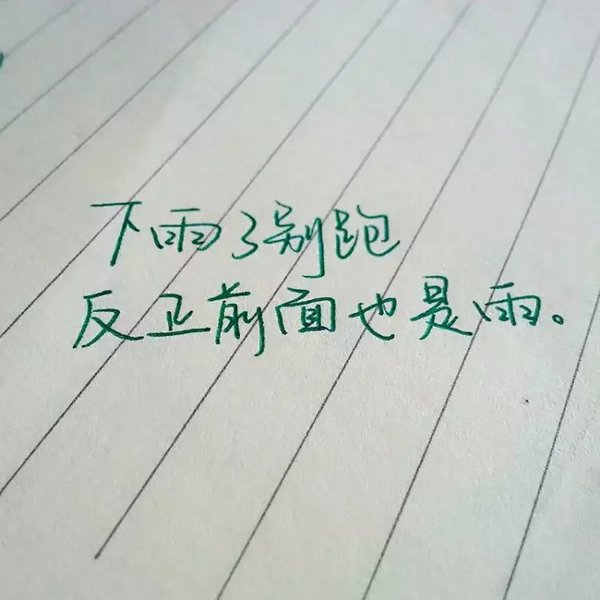 下雨了别跑
反正前面也是雨。